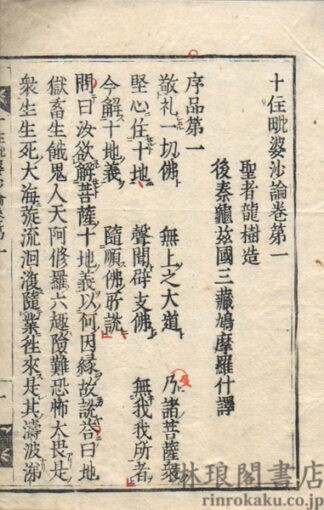 十住毗婆沙論卷第一
聖者龍樹造
後秦龜茲國三藏鳩摩羅什譯
序品第一
敬礼一切佛 無上之大道 乃諸菩薩衆
堅心住十地 聲聞辟支佛 無我我所者
今解十地義 隨順佛所說
問曰汝欲解菩薩十地義以何因緣故說荅曰地
獄畜生餓鬼人天阿修羅六趣險難恐怖大畏是
衆生生死大海旋流洄澓隨業徃來是其濤波涕
及
林琅閣書店
rinrokaku.co.jp